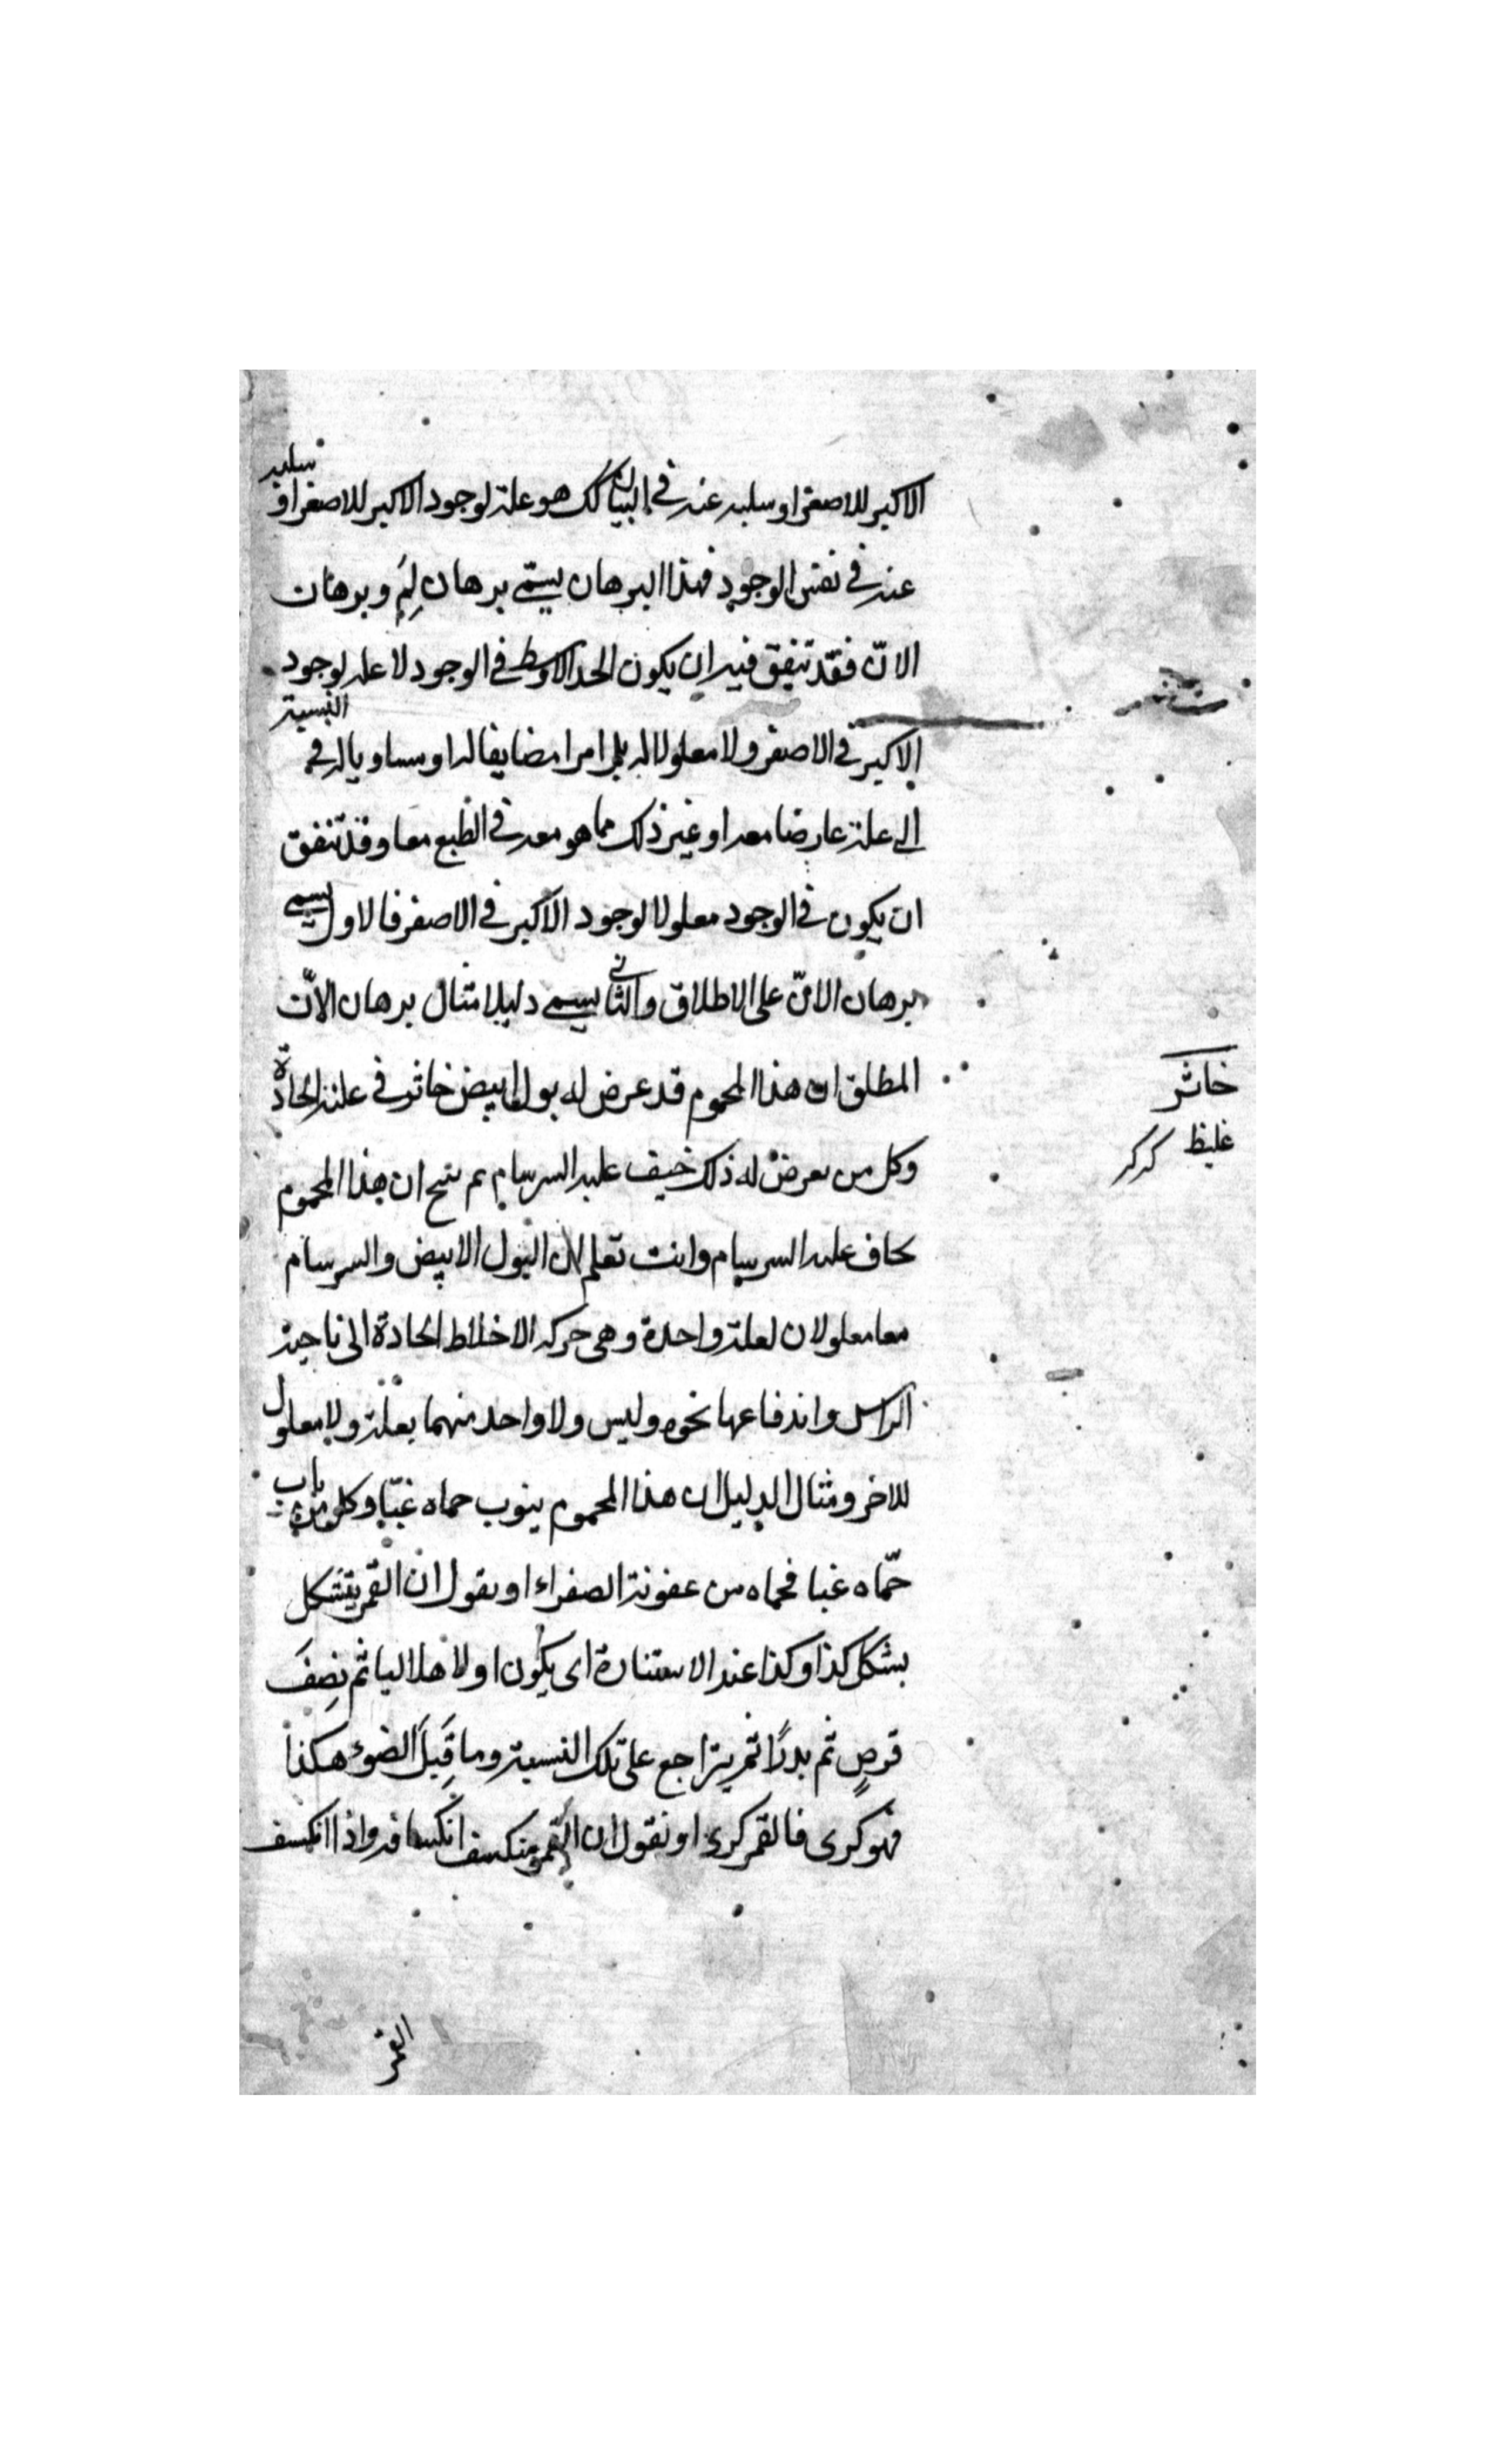 الاكبر للاصغر او سلبه عنه في البيان كك هو علة لوجود الاكبر للاصغر او سلبه
عنه في نفس الوجود فهذا البرهان يسمّى برهان لِمَ وبرهان
الانّ فقد تتفق فيه ان يكون الحد الاوسط في الوجود لا علة لوجود
الاكبر في الاصغر ولا معلولا له بل امرا مضايفا له او مساويا له في النسبة
الى علة عارضا معه او غير ذلك مما هو معه في الطبع معا وقد تتفق
ان يكون في الوجود معلولا لوجود الاكبر في الاصغر فالاول يسمى
برهان الانّ على الاطلاق والثاني يسمى دليلا مثال برهان الانّ
المطلق ان هذا المحموم قد عرض له بول ابيض خاثر في علته الحادّة
وكل من يعرض له ذلك خيف عليه السرسام ينتج ان هذا المحموم
يخاف عليه السرسام وانت تعلم ان البول الابيض والسرسام
معا معلولان لعلة واحدة وهى حركة الاخلاط الحادة الى ناحية
الراس واندفاعها نحوه وليس ولا واحد منهما بعلة ولا معلول
للاخر ومثال الدليل ان هذا المحموم ينوب حماه غبّا وكل من ناب
حمّاه غبا فحماه من عفونة الصفراء او نقول ان القمر يتشكل
بشكل كذا وكذا عند الاستنارة اى يكون اولا هلاليا ثم نِصفَ
قرصٍ ثم بدرًا ثم يتراجع على تلك النسبة وما قَبِلَ الضوء هكذا
فهو كرى فالقمر كرى او نقول ان القمر منكسف انكسافه واذا انكسف
القمر
خاثر
غليظ